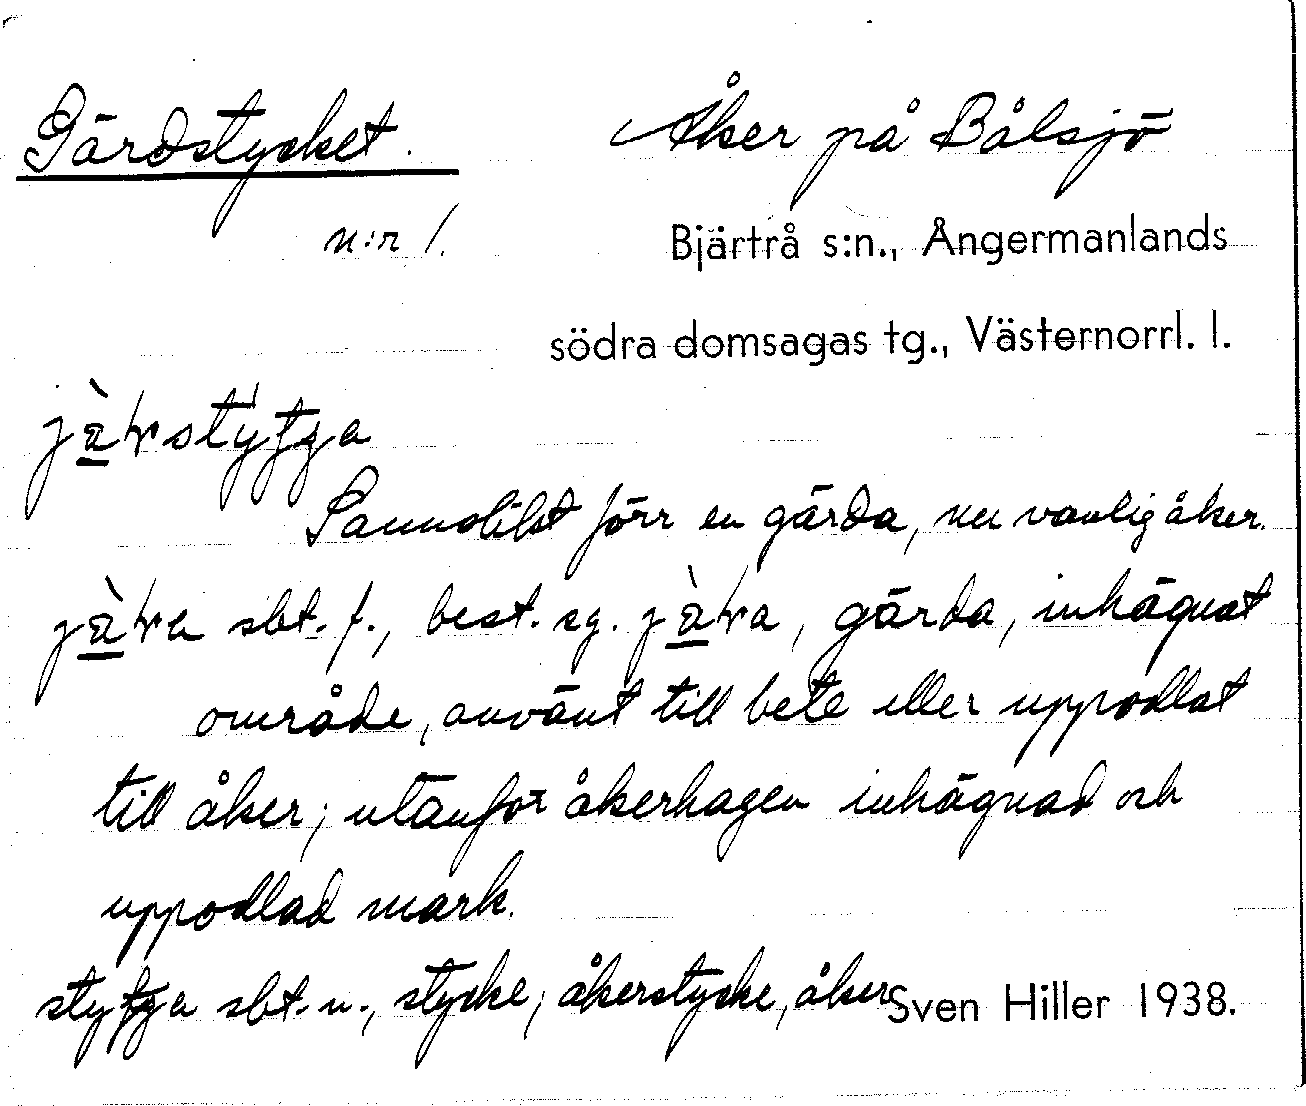 Gärdstycket. Åker på Bålsjö
n:r 1. Bjärtrå s:n., Ångermanlands
södra domsagas tg., Västernorrl. l.
Sannolikt förr en gärda, nu vanlig åker.
sbt. f., best. sg. gärda, inhägnat
område, använt till bete eller uppodlat
till åker; utanför åkerhagen inhägnad och
uppodlad mark.
sbt. n., stycke; åkerstycke, åker
Sven Hiller 1938.